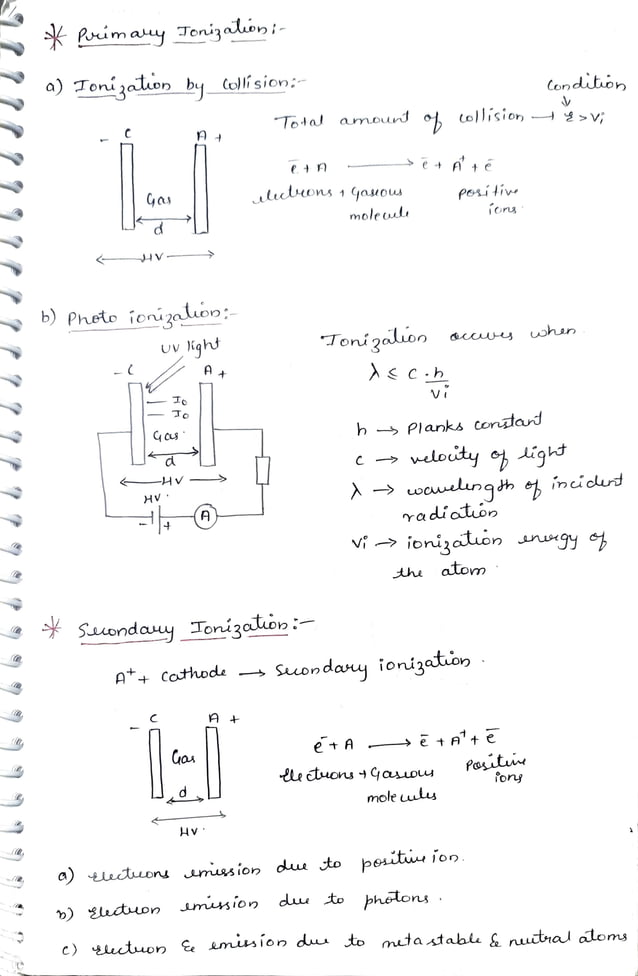 * Primary Ionization:-
a) Ionization by Collision:-
Condition
↓
Total amount of collision → ε > Vi
- C A +
Gas
d
HV
e̅ + A → e̅ + A⁺ + e̅
electrons + Gaseous positive
molecule ions
b) Photo ionization:-
UV light
- C A +
I₀
I₀
Gas
d
HV
HV
- + A
Ionization occures when
λ ≤ c.h/Vi
h → Planks constant
c → velocity of light
λ → wavelength of incident
radiation
Vi → ionization energy of
the atom
* Secondary Ionization:-
A⁺ + Cathode → Secondary ionization.
- C A +
Gas
d
HV.
e̅ + A → e̅ + A⁺ + e̅
Electrons + Gasious Positive
molecules ions
a) electrons emission due to positive ion.
b) Electron emission due to photons.
c) Electron & emission due to metastable & neutral atoms